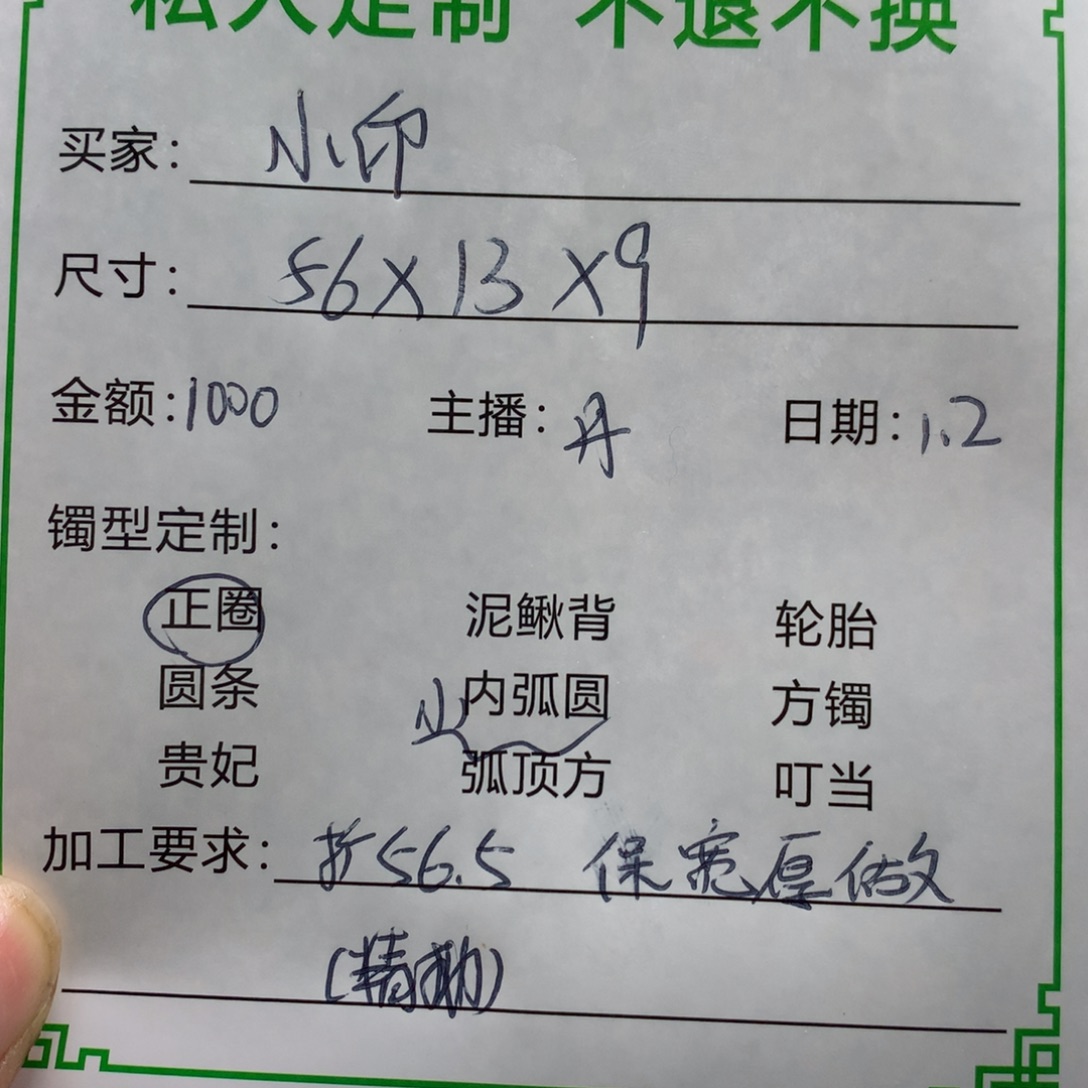 私人定制 不退不换
买家: 小印
尺寸: 56X13X9
金额:1000 主播:丹 日期:1.2
镯型定制:
正圈 泥鳅背 轮胎
圆条 小内弧圆 方镯
贵妃 弧顶方 叮当
加工要求: 扩56.5 保宽厚做
(精雕)